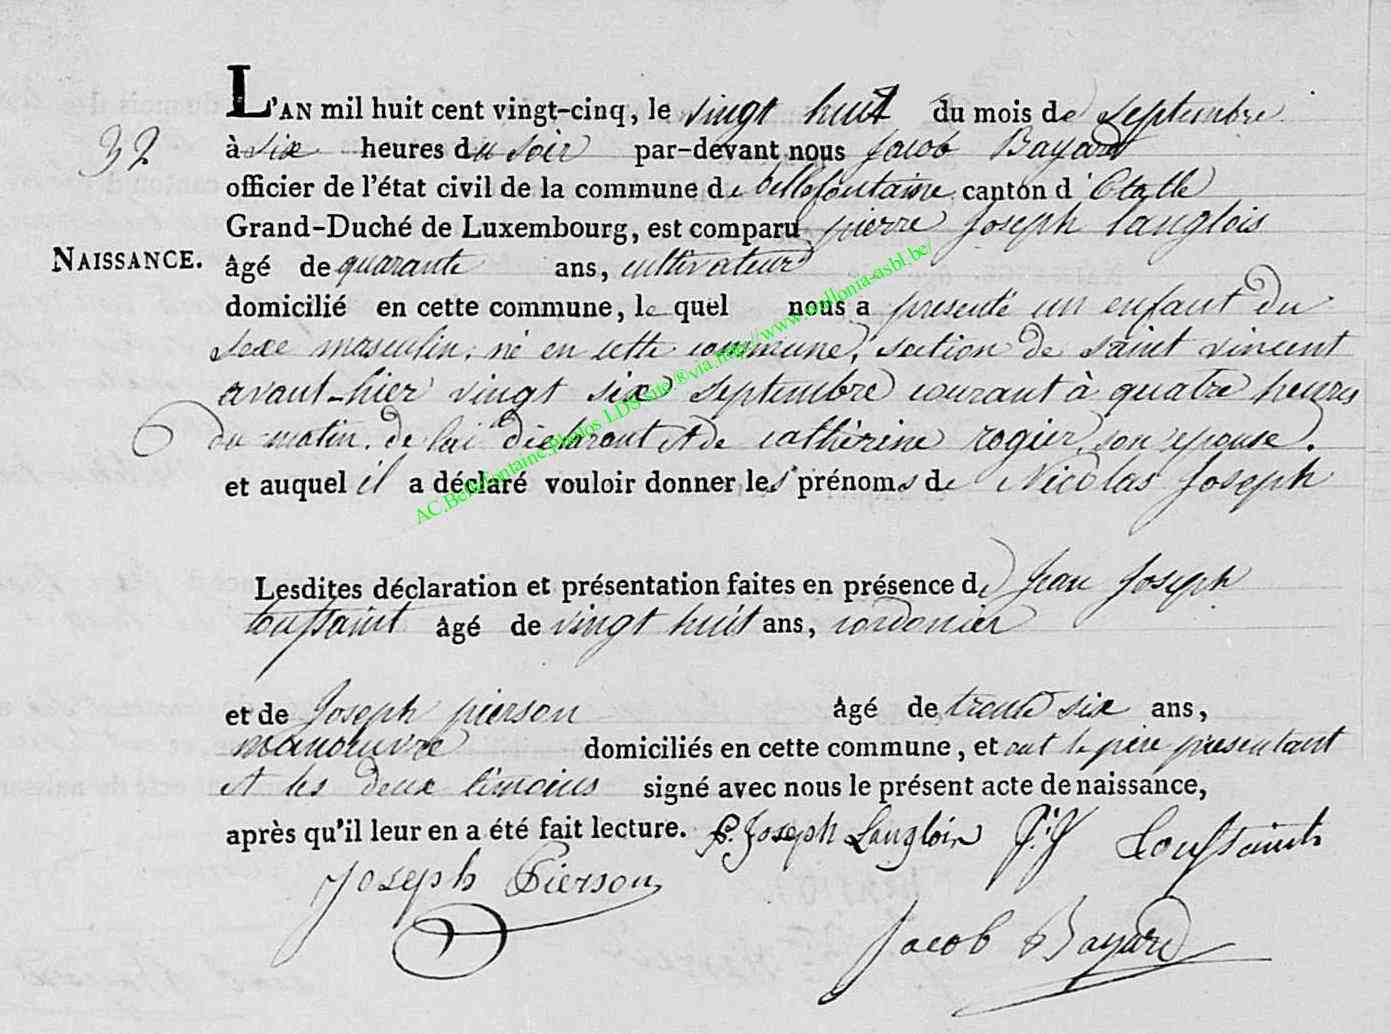 L'AN mil huit cent vingt-cinq, le vingt huit du mois de septembre
32
à six heures du soir par-devant nous jacob Bayard
officier de l'état civil de la commune de bellefontaine canton d'Etalle
Grand-Duché de Luxembourg, est comparu pierre joseph langlois
NAISSANCE.
âgé de quarante ans, cultivateur
domicilié en cette commune, le quel nous a presenté un enfant du
sexe masculin, né en cette commune, section de saint vincent
avant-hier vingt six septembre courant à quatre heures
du matin, de lui déclarant et de cathérine rogier, son epouse.
et auquel il a déclaré vouloir donner les prénoms de Nicolas Joseph
AC.Bellefontaine.photos LDS site ®via.http://www.wallonia-asbl.be/
Lesdites déclaration et présentation faites en présence de jean joseph
toussaint âgé de vingt huit ans, cordonier
et de Joseph pierson âgé de trente six ans,
manoeuvre domiciliés en cette commune, et ont le père présentant
et les deux témoins signé avec nous le présent acte de naissance,
après qu'il leur en a été fait lecture. P. Joseph Langlois J: J Toussaint
Joseph Pierson
Jacob Bayard